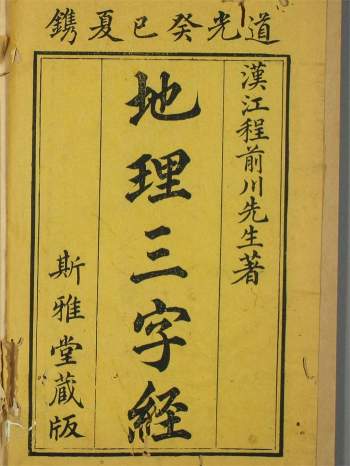 道光癸巳夏鐫
漢江程前川先生著
地理三字經
斯雅堂藏版